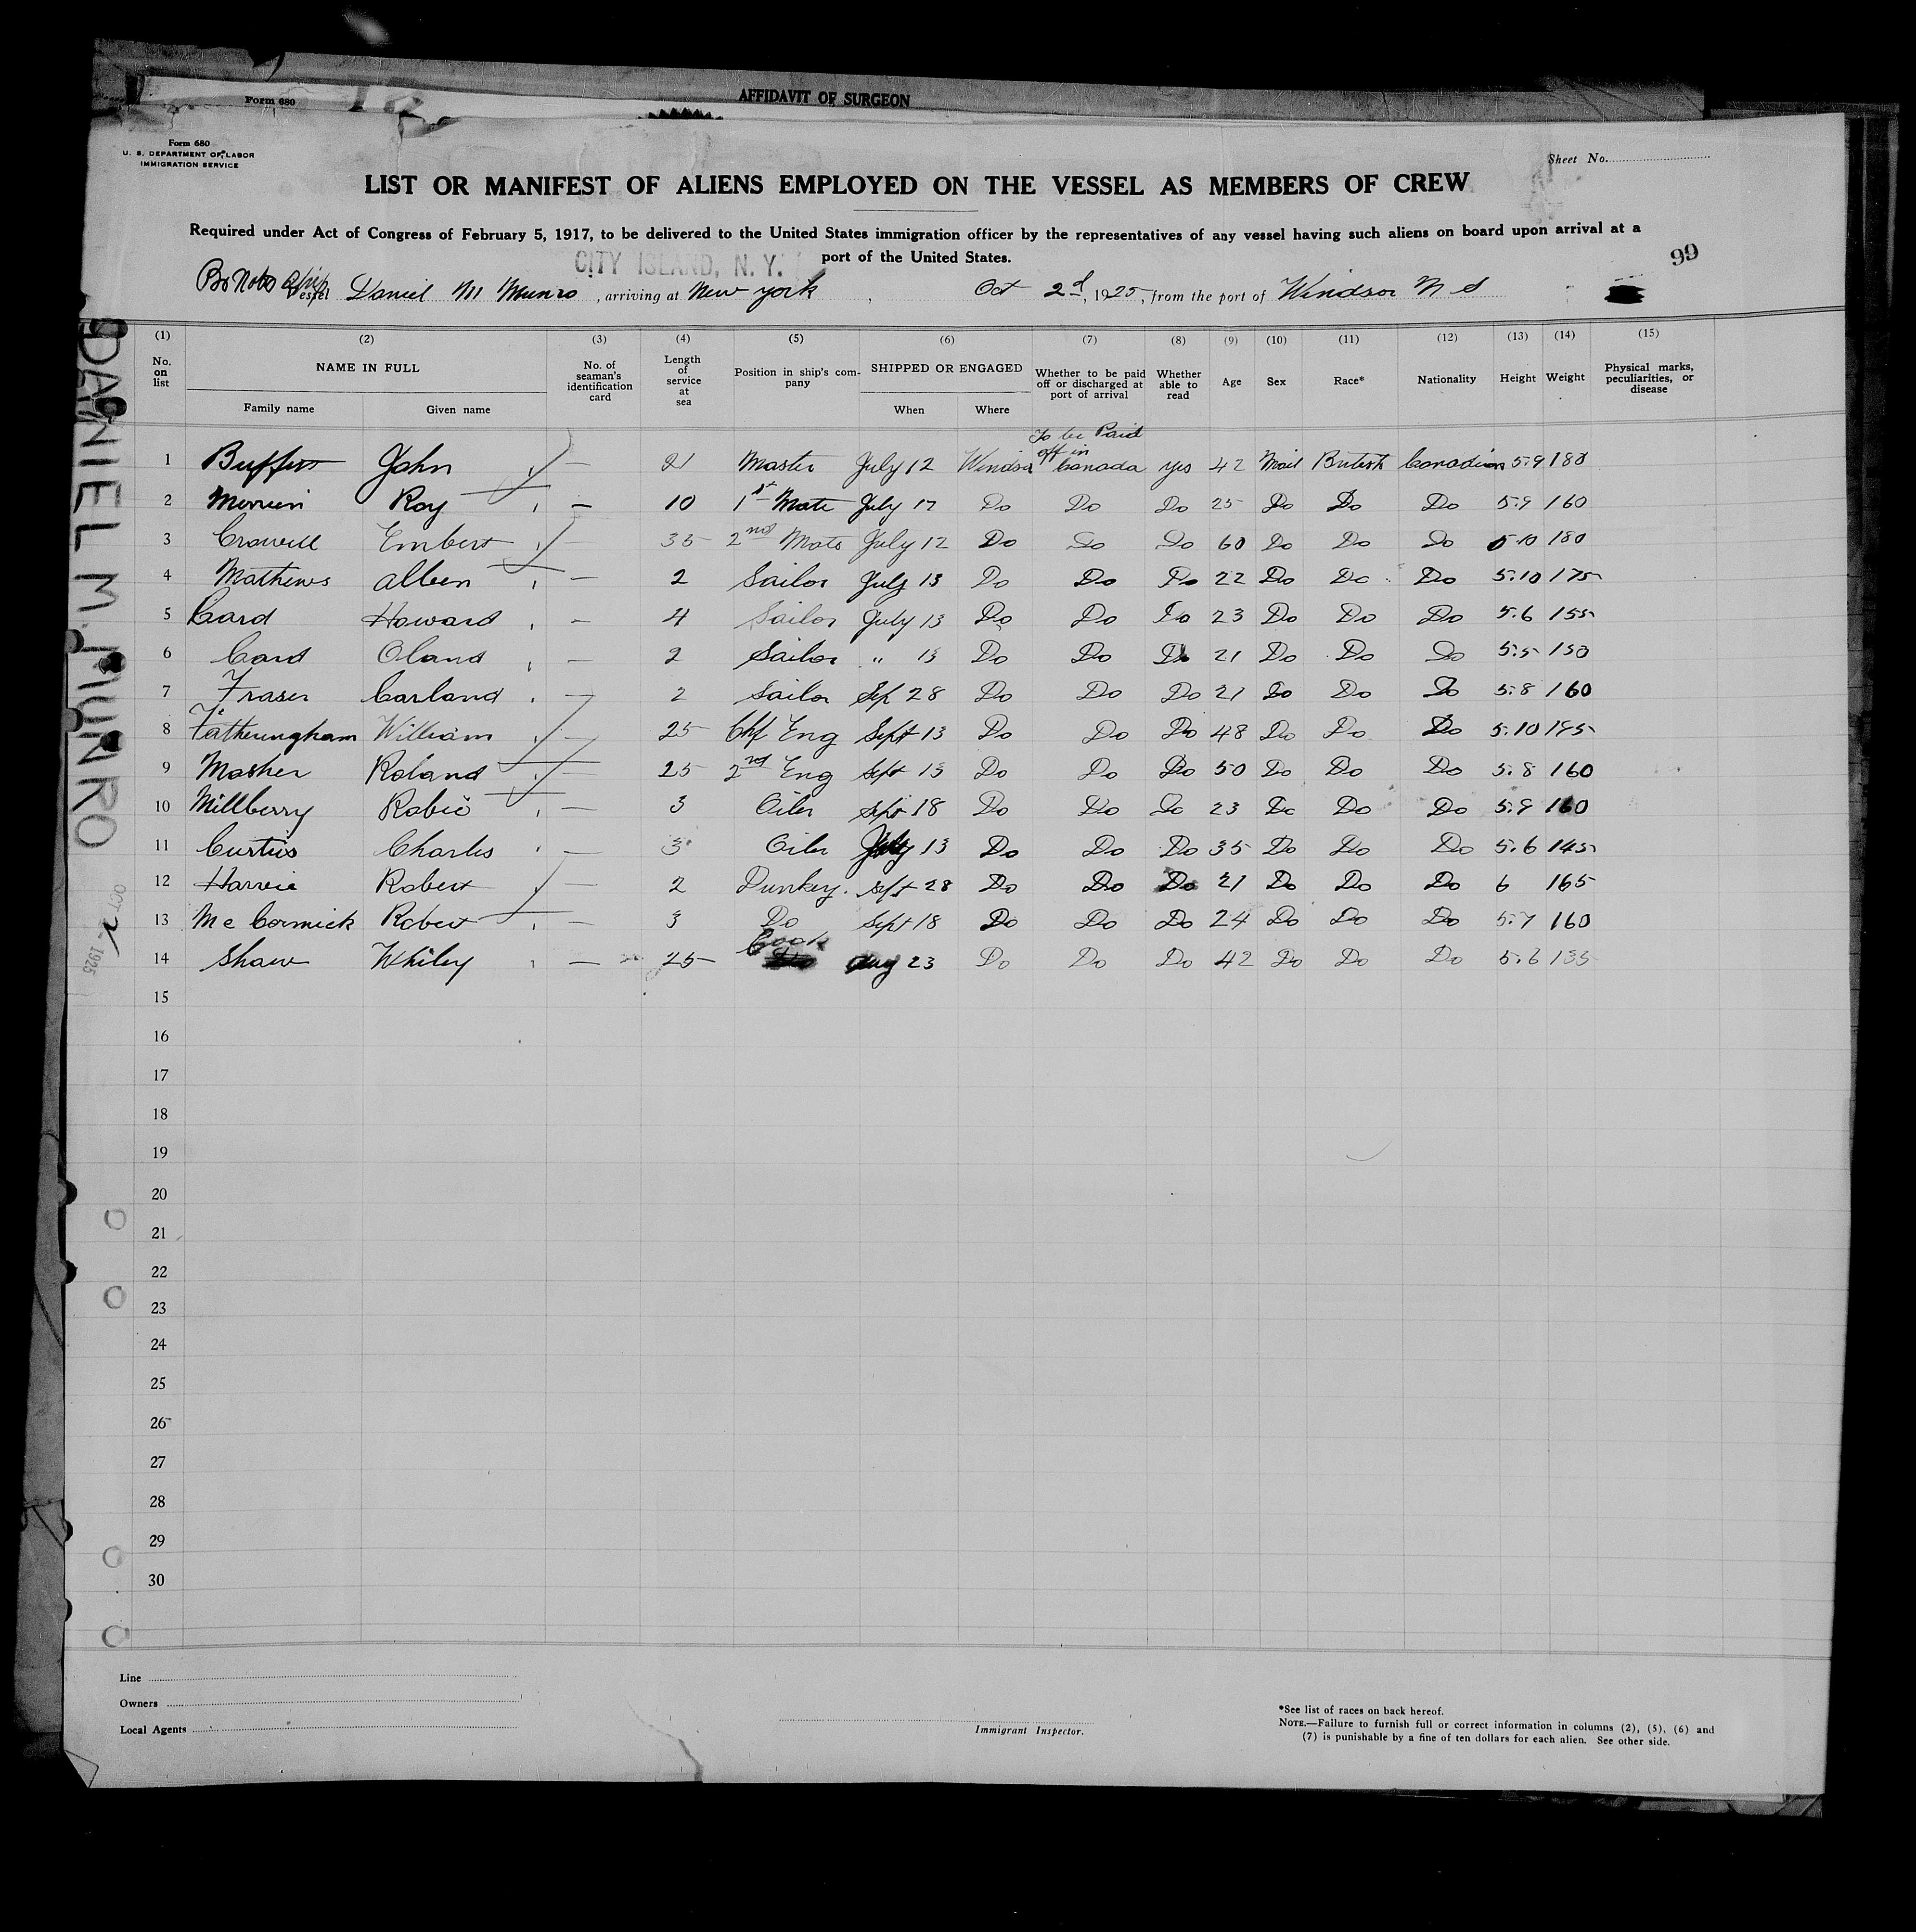 Form 680
AFFIDAVIT OF SURGEON
Form 680
U. S. DEPARTMENT OF LABOR
IMMIGRATION SERVICE
Sheet No.
LIST OR MANIFEST OF ALIENS EMPLOYED ON THE VESSEL AS MEMBERS OF CREW
Required under Act of Congress of February 5, 1917, to be delivered to the United States immigration officer by the representatives of any vessel having such aliens on board upon arrival at a
port of the United States.
CITY ISLAND, N. Y.
99
Vessel Daniel M Munro, arriving at New York, Oct 2d, 1925, from the port of Windsor N S
(1) (2) (3) (4) (5) (6) (7) (8) (9) (10) (11) (12) (13) (14) (15)
No. on list NAME IN FULL No. of seaman's identification card Length of service at sea Position in ship's company SHIPPED OR ENGAGED Whether to be paid off or discharged at port of arrival Whether able to read Age Sex Race* Nationality Height Weight Physical marks, peculiarities, or disease
Family name Given name When Where
To be Paid off in
1 John — 21 Master July 12 Windsor Canada yes 42 Mail British Canadian 5.9 180
2 Roy — 10 1st Mate July 17 Do Do Do 25 Do Do Do 5.9 160
3 Crowell Embert — 35 2nd Mate July 12 Do Do Do 60 Do Do Do 5.10 180
4 Mathews — 2 Sailor July 13 Do Do Do 22 Do Do Do 5.10 175
5 Card Howard — 4 Sailor July 13 Do Do Do 23 Do Do Do 5.6 155
6 Card Oland — 2 Sailor " 13 Do Do Do 21 Do Do Do 5.5 150
7 Fraser Carland — 2 Sailor Sep 28 Do Do Do 21 Do Do Do 5.8 160
8 Fatheringham William — 25 Chf Eng Sept 13 Do Do Do 48 Do Do Do 5.10
9 Mosher Roland — 25 2nd Eng Sept 13 Do Do Do 50 Do Do Do 5.8 160
10 Millberry Robie — 3 Oiler Sept 18 Do Do Do 23 Do Do Do 5.9 160
11 Curtis Charles — 3 Oiler July 13 Do Do Do 35 Do Do Do 5.6 145
12 Harvie Robert — 2 Dunkey. Sept 28 Do Do Do 21 Do Do Do 6 165
13 McCormick Robert — 3 Do Sept 18 Do Do Do 24 Do Do Do 5.7 160
14 Shaw Whiley — 25 Cook Aug 23 Do Do Do 42 Do Do Do 5.6 135
15
16
17
18
19
20
21
22
23
24
25
26
27
28
29
30
DANIEL M. MUNRO
OCT 2 1925
Line
Owners
Local Agents
Immigrant Inspector.
*See list of races on back hereof.
NOTE.—Failure to furnish full or correct information in columns (2), (5), (6) and
(7) is punishable by a fine of ten dollars for each alien. See other side.